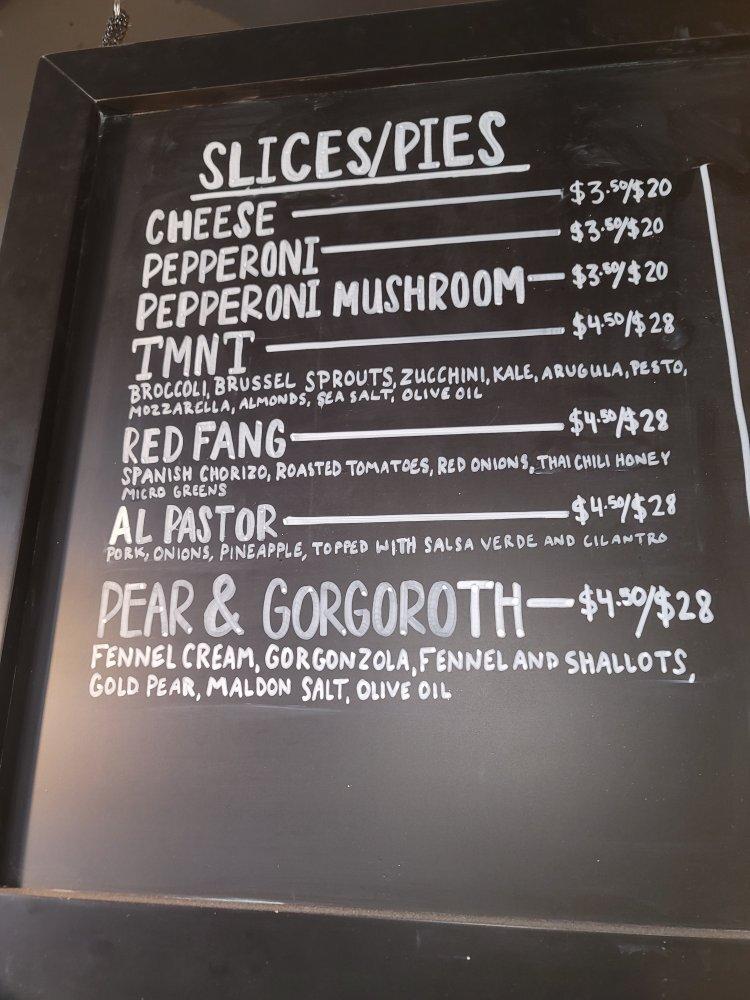 SLICES/PIES
CHEESE $3.50/$20
PEPPERONI $3.50/$20
PEPPERONI MUSHROOM $3.50/$20
TMNT $4.50/$28
BROCCOLI, BRUSSEL SPROUTS, ZUCCHINI, KALE, ARUGULA, PESTO,
MOZZARELLA, ALMONDS, SEA SALT, OLIVE OIL
RED FANG $4.50/$28
SPANISH CHORIZO, ROASTED TOMATOES, RED ONIONS, THAI CHILI HONEY
MICRO GREENS
AL PASTOR $4.50/$28
PORK, ONIONS, PINEAPPLE, TOPPED WITH SALSA VERDE AND CILANTRO
PEAR & GORGOROTH $4.50/$28
FENNEL CREAM, GORGONZOLA, FENNEL AND SHALLOTS,
GOLD PEAR, MALDON SALT, OLIVE OIL